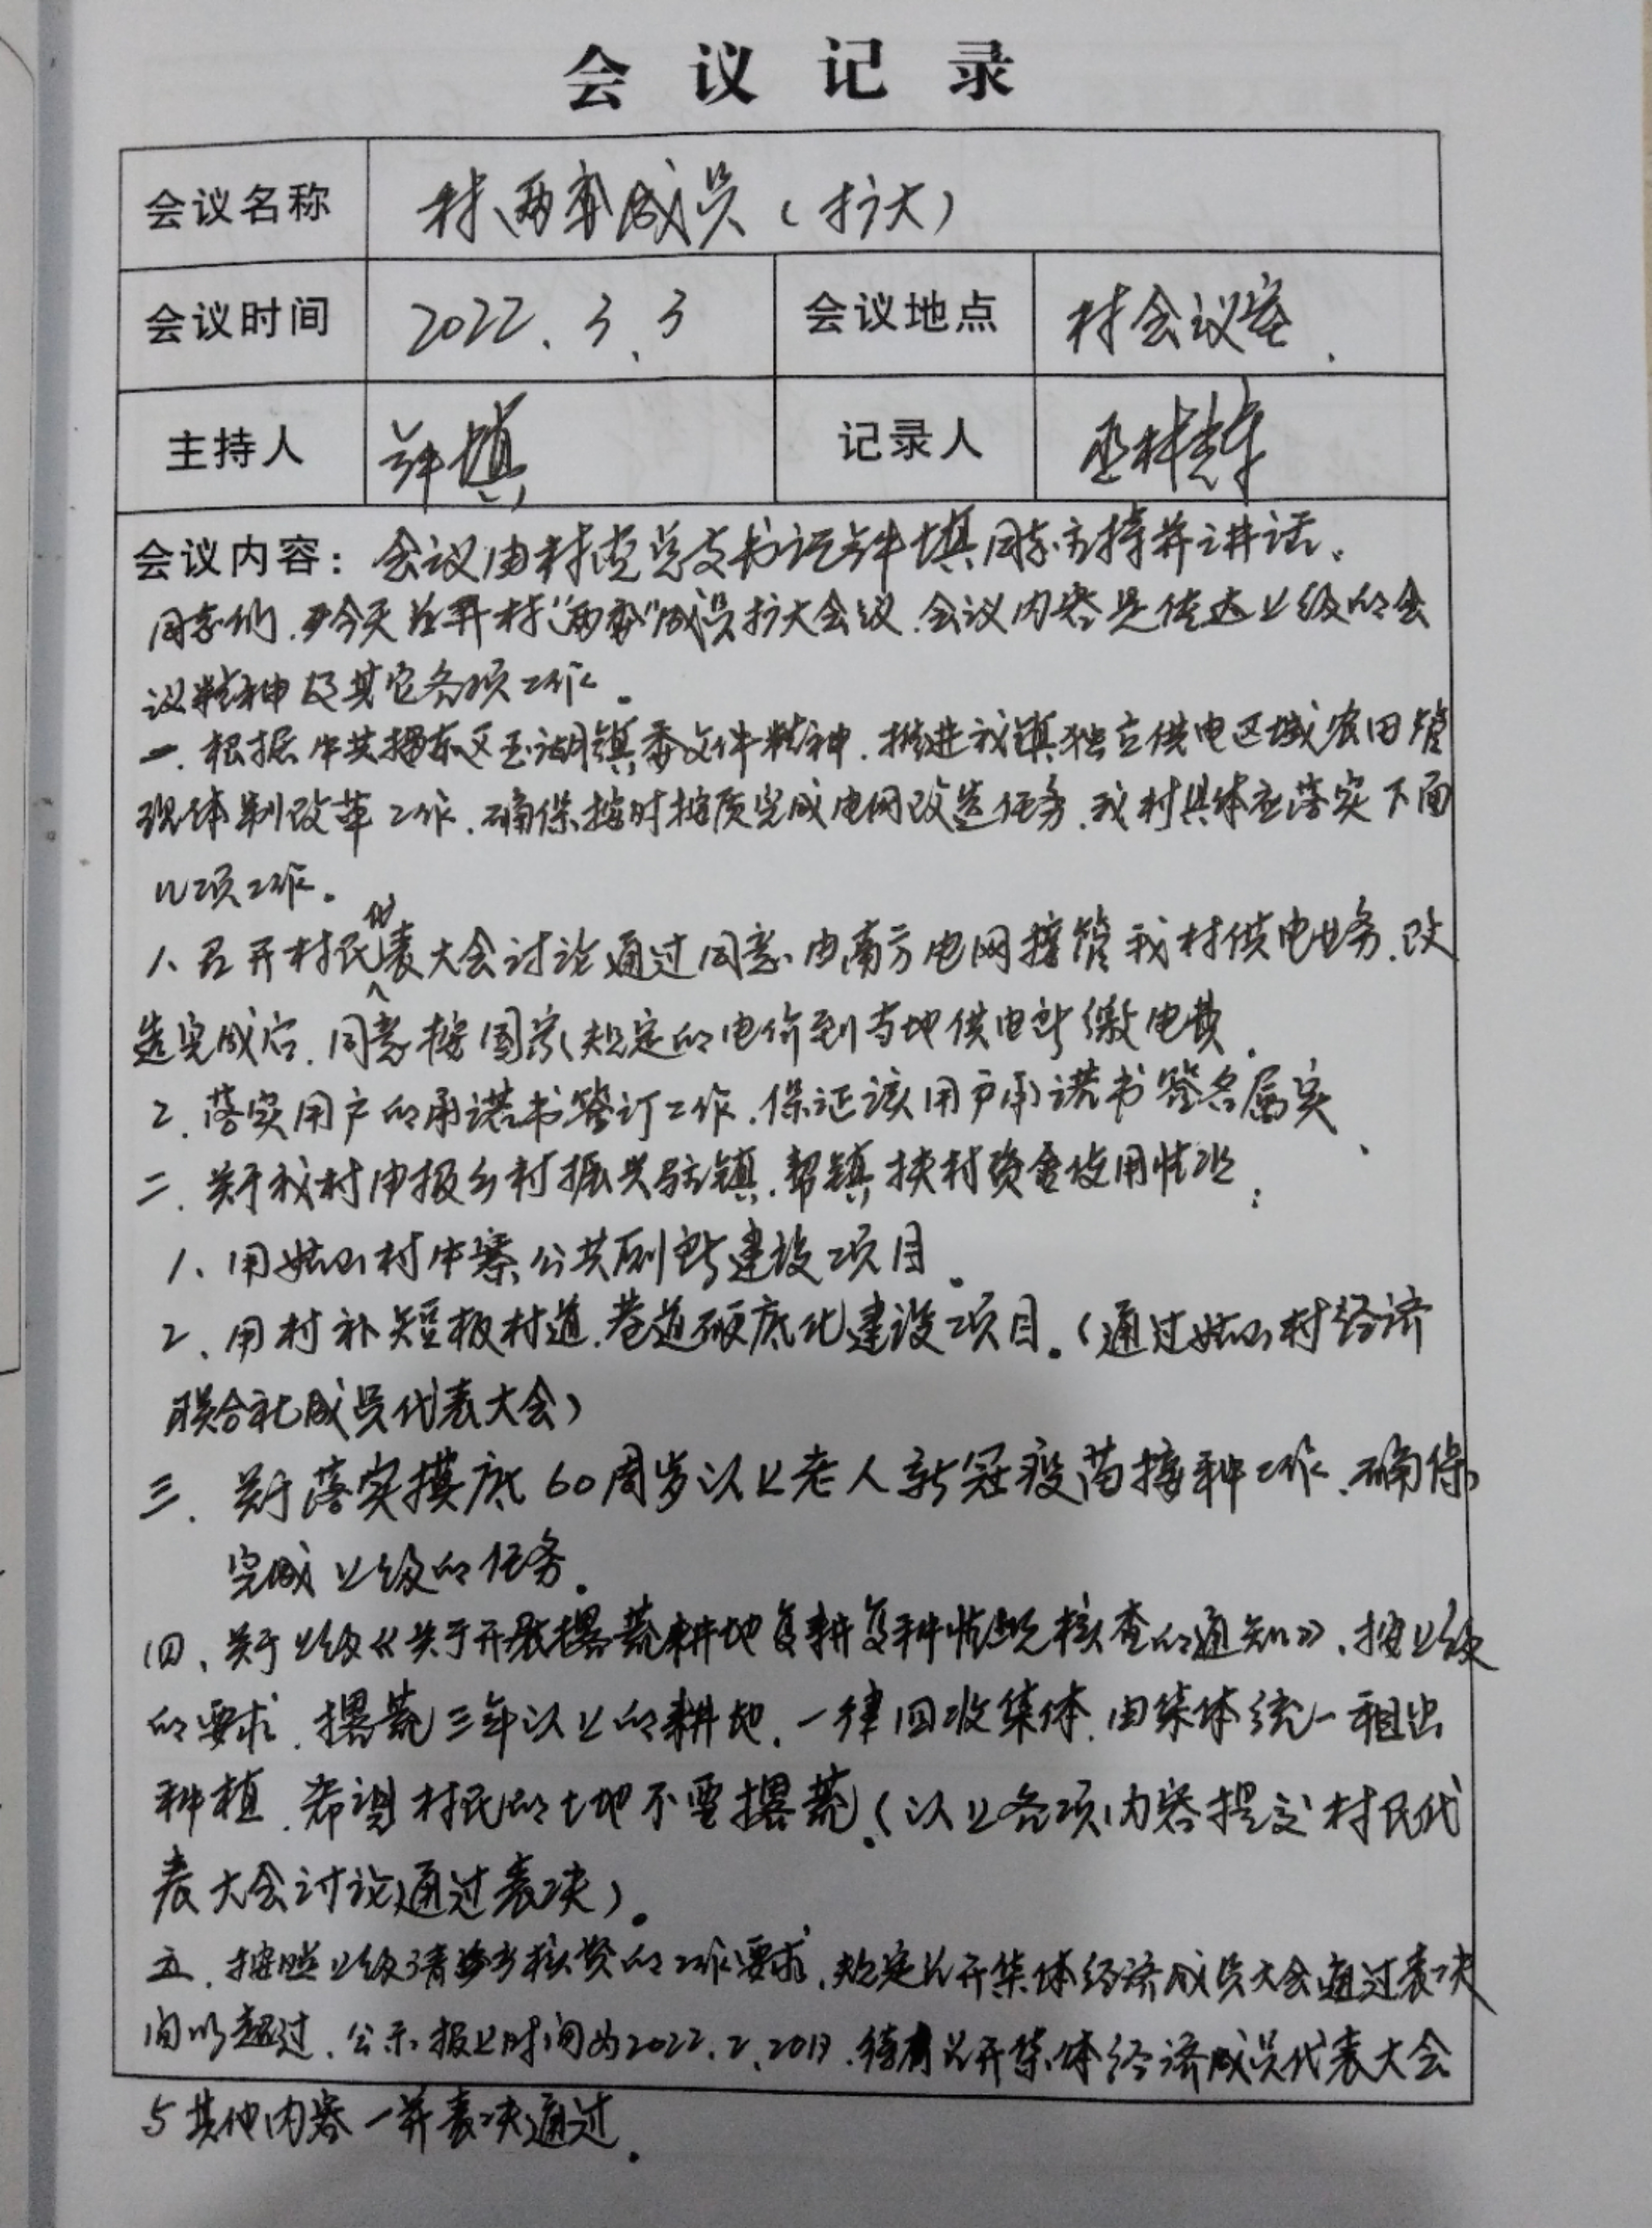 会议记录
会议名称 村两委成员（扩大）
会议时间 2022.3.3 会议地点 村会议室.
主持人 记录人
会议内容：会议由村党总支书记 同志主持并讲话。
同志们,今天召开村“两委”成员扩大会议.会议内容是传达上级的会
议精神及其它各项工作。
一.根据中共揭东区玉湖镇委文件精神.推进我镇独立供电区域农田管
理体制改革工作.确保按时按质完成电网改造任务.我村具体应落实下面
几项工作。
1、召开村民代表大会讨论通过同意由南方电网接管我村供电业务.改
造完成后.同意按国家规定的电价到当地供电所缴电费.
2.落实用户的承诺书签订工作.保证该用户承诺书签名属实、
二.关于我村申报乡村振兴驻镇.帮镇扶村资金使用情况:
1、用姑山村中寨公共厕所建设项目。
2、用村补短板村道.巷道硬底化建设项目。（通过姑山村经济
联合社成员代表大会）
三.关于落实摸底60周岁以上老人新冠疫苗接种工作.确保
完成上级的任务。
四、关于上级《关于开展撂荒耕地复耕复种情况核查的通知》、按上级
的要求.撂荒三年以上的耕地.一律回收集体.由集体统一租出
种植.希望村民的土地不要撂荒。（以上各项内容提交村民代
表大会讨论通过表决）。
五.按照上级清产核资的工作要求.规定召开集体经济成员大会通过表决
超过.公示报上时间为2022.2.20日.待召开集体经济成员代表大会
与其他内容一并表决通过.